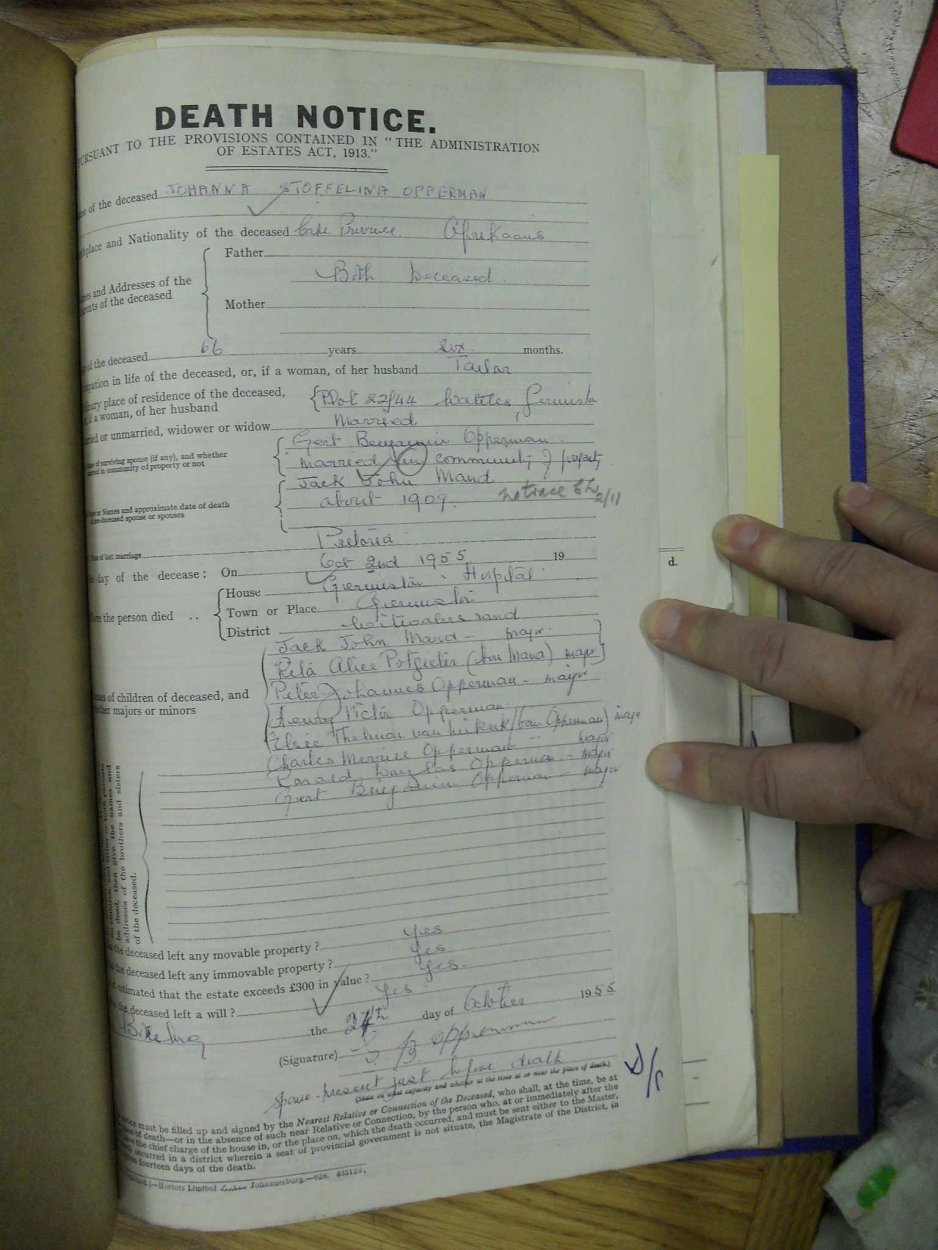 DEATH NOTICE.
PURSUANT TO THE PROVISIONS CONTAINED IN "THE ADMINISTRATION
OF ESTATES ACT, 1913."
of the deceased JOHANNA STOFFELINA OPPERMAN
and Nationality of the deceased Cape Province Afrikaans
Father
and Addresses of the
of the deceased
Both Deceased.
Mother
of the deceased 66 years six months.
in life of the deceased, or, if a woman, of her husband Tailor
place of residence of the deceased,
a woman, of her husband
Plot 22/44 Germiston
or unmarried, widower or widow Married
of surviving spouse (if any), and whether
in community of property or not
Gert Benjamin Opperman
married in community of property
or Names and approximate date of death
spouse or spouses
Jack John Mand
about 1909. no trace 2/11
of last marriage Pretoria
day of the decease: On Oct 2nd 1955 19
the person died ..
House Germiston Hospital
Town or Place Germiston
District Witwatersrand
of children of deceased, and
majors or minors
Jack John Mand - major
Rita Alice Potgieter ( Mand) major
Peter Johannes Opperman - major
Henry Victor Opperman
Elsie Thelma van Niekerk (born Opperman) major
Charles Opperman - major
Ronald Douglas Opperman - major
Gert Benjamin Opperman - major
be dead, then give the names and
addresses of the brothers and sisters
of the deceased.
the deceased left any movable property? Yes
the deceased left any immovable property? Yes
estimated that the estate exceeds £300 in value? Yes.
the deceased left a will? Yes
the 24th day of October 1955
(Signature) G B Opperman
spouse - present just before death
(State in what capacity and whether at the time at or near the place of death.)
must be filled up and signed by the Nearest Relative or Connection of the Deceased, who shall, at the time, be at
of death—or in the absence of such near Relative or Connection, by the person who, at or immediately after the
the chief charge of the house in, or the place on, which the death occurred, and must be sent either to the Master,
occurred in a district wherein a seat of provincial government is not situate, the Magistrate of the District, in
fourteen days of the death.
Hortors Limited Johannesburg.
d.